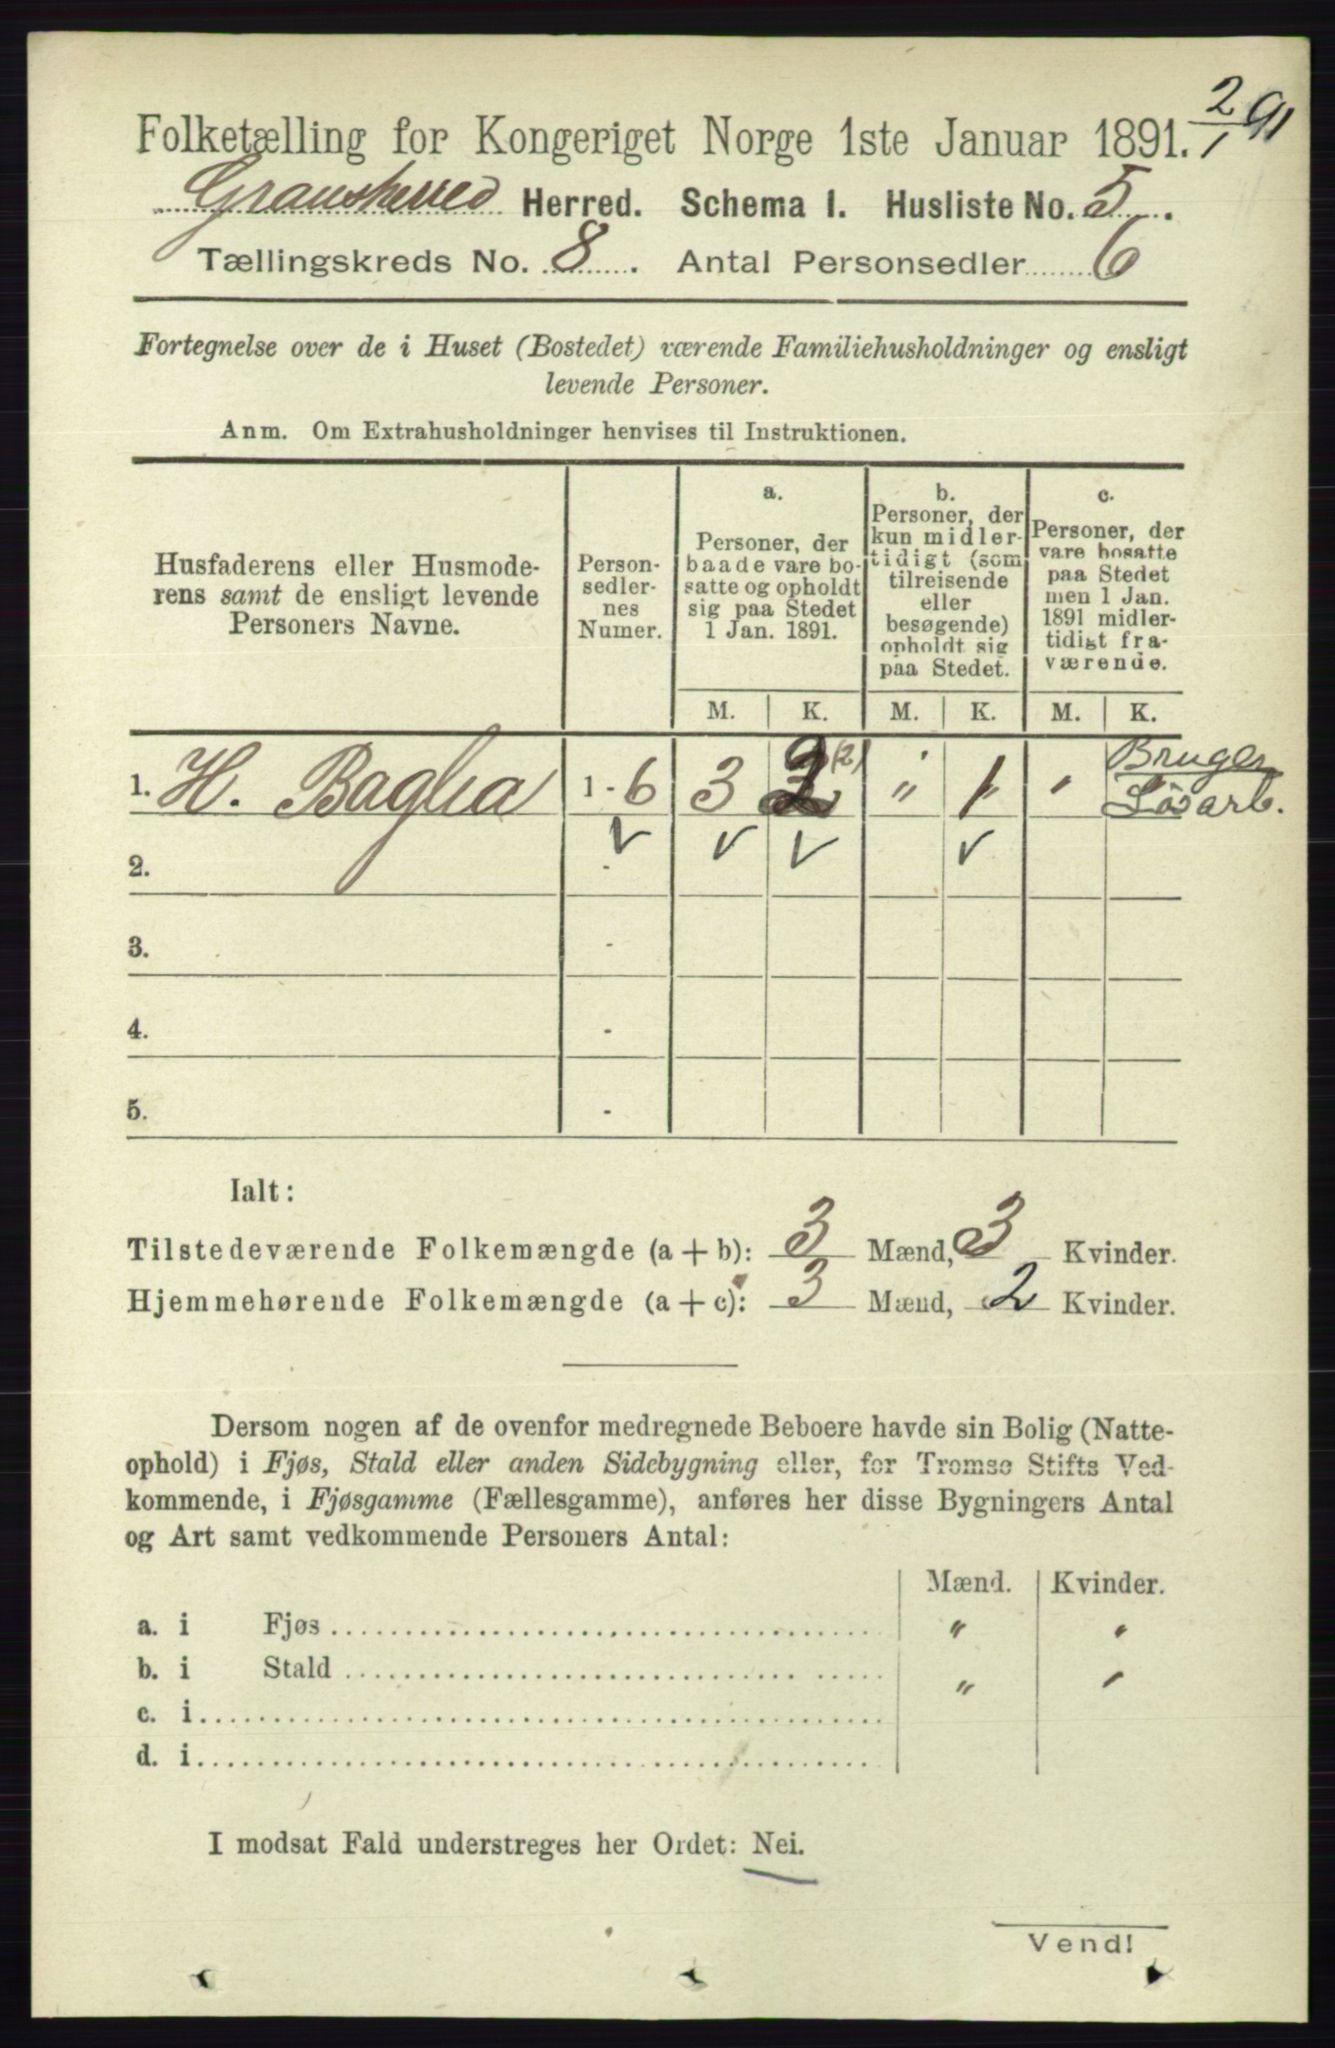 2/1 91
Folketælling for Kongeriget Norge 1ste Januar 1891.
Gransherred Herred. Schema 1. Husliste No. 5.
Tællingskreds No. 8. Antal Personsedler 6
Fortegnelse over de i Huset (Bostedet) værende Familiehusholdninger og ensligt
levende Personer.
Anm. Om Extrahusholdninger henvises til Instruktionen.
Husfaderens eller Husmode-
rens samt de ensligt levende
Personers Navne.
Person-
sedler-
nes
Numer.
a.
Personer, der
baade vare bo-
satte og opholdt
sig paa Stedet
1 Jan. 1891.
b.
Personer, der
kun midler-
tidigt (som
tilreisende
eller
besøgende)
opholdt sig
paa Stedet.
c.
Personer, der
vare bosatte
paa Stedet
men 1 Jan.
1891 midler-
tidigt fra-
værende.
M. K. M. K. M. K.
1. H. Baglia 1 - 6 3 2 (2) " 1 "
Bruger
Løsarb.
2. -
3. -
4. -
5. -
Ialt:
Tilstedeværende Folkemængde (a + b): 3 Mænd, 3 Kvinder.
Hjemmehørende Folkemængde (a + c): 3 Mænd, 2 Kvinder.
Dersom nogen af de ovenfor medregnede Beboere havde sin Bolig (Natte-
ophold) i Fjøs, Stald eller anden Sidebygning eller, for Tromsø Stifts Ved-
kommende, i Fjøsgamme (Fællesgamme), anføres her disse Bygningers Antal
og Art samt vedkommende Personers Antal:
Mænd. Kvinder.
a. i Fjøs " "
b. i Stald " "
c. i
d. i
I modsat Fald understreges her Ordet: Nei.
Vend!